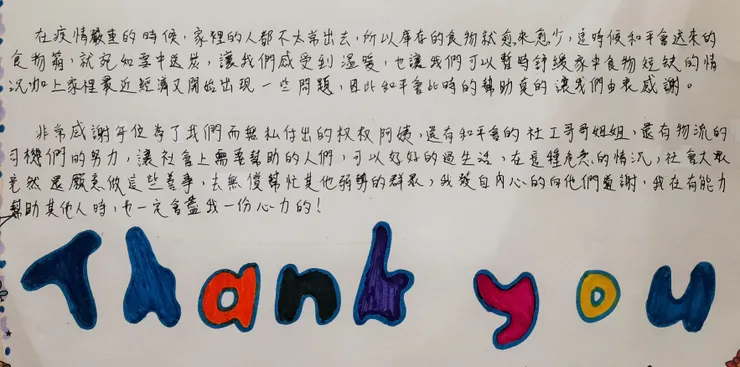 在疫情嚴重的時候，家裡的人都不太常出去，所以庫存的食物就愈來愈少，這時候和平會送來的
食物箱，就宛如雪中送炭，讓我們感受到溫暖，也讓我們可以暫時舒緩家中食物短缺的情
況加上家裡最近經濟又開始出現一些問題，因此和平會此時的幫助真的讓我們由衷感謝。
非常感謝每位為了我們而無私付出的叔叔阿姨，還有和平會的社工哥哥姐姐，最有物流的
司機們的努力，讓社會上需要幫助的人們，可以好好的過生活，在這種危急的情況，社會大眾
竟然還願意做這些善事，去無償幫忙其他弱勢的群眾，我發自內心的向他們道謝，我在有能力
幫助其他人時，也一定會盡我一份心力的！
Thank you